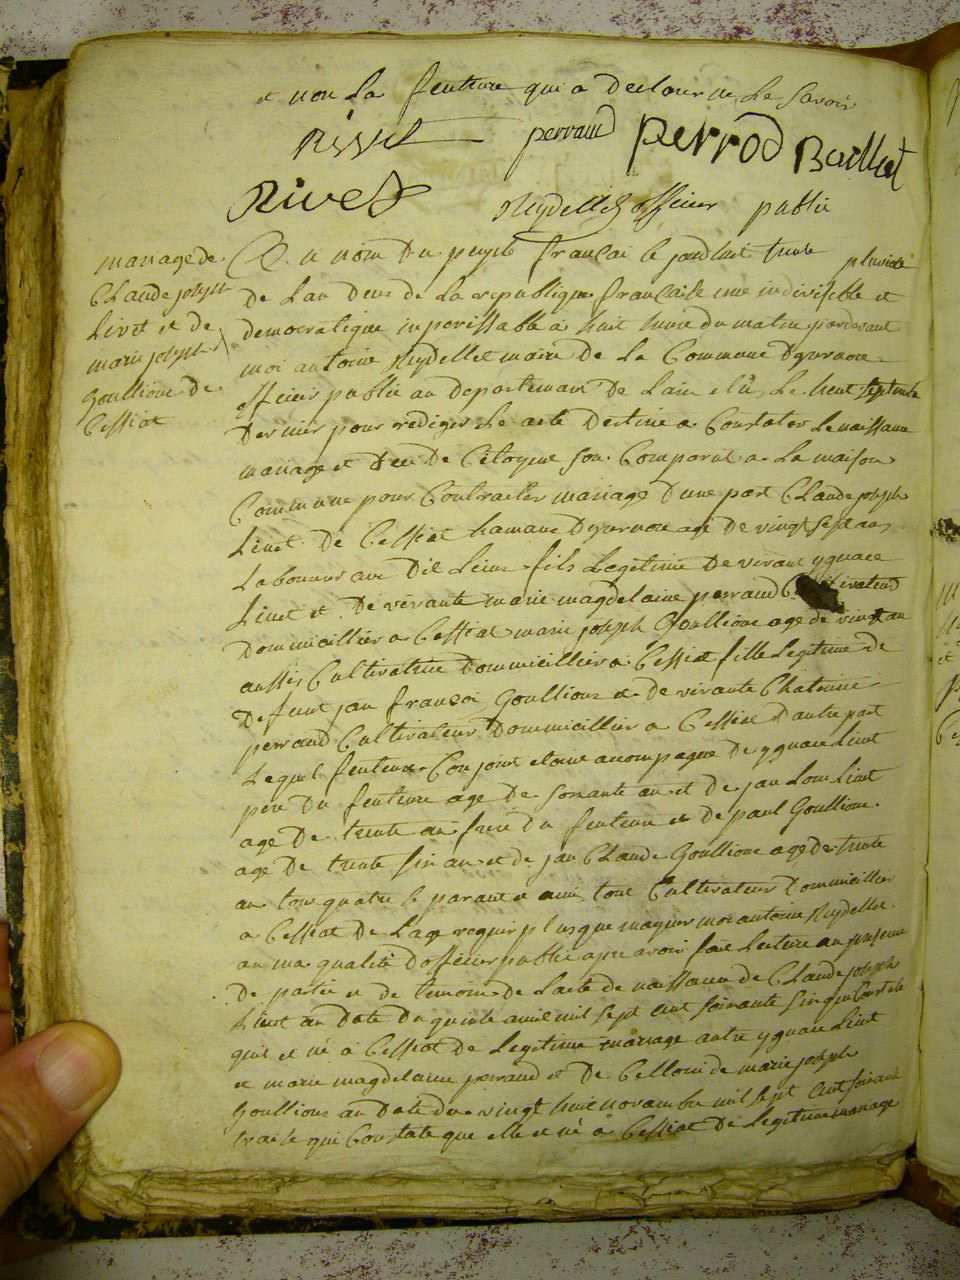 et non La feuteure qui a declaire ne Le Savoir
Rivet perraud perrod Bailliat
Rivet Reydellet officier public
mariage de
Claude joseph
Livet et de
marie joseph
Goullioux de
Cessiat
Au nom Du peuple françai le jourduit trente pluviose
de Lan Deus de La republique françaisse une indivisible et
democratique inperissable a huit heure du matin pardevant
moi antoine Reydellet maire de la Commune Dyzernore
officier public au departeman De Lain elu Le huit septembre
Dernier pour rediger Le acte Destine a Constater Le naissance
mariage et Dece De Citoyens son Comparut a La maison
Commune pour Contracter mariage Dune part Claude joseph
Livet De Cessiat hamaux Dyzernore age De vingt sept ans
Laboureur au Dit Lieux fils Legitime De vivant ygnace
Livet et De vivante marie magdelaine perraud Cultivateur
Dommicillier a Cessiat marie joseph Goullioux age de vingt an
aussis Cultivatrice Dommicillier a Cessiat fille Legitime de
Defeunt jan françoi Goullioux et De vivante Chaterine
perraud Cultivateur Dommicillier a Cessiat Dautre part
Lequel feuteure Conjoint etant acompagne De ygnace Livet
pere Du feuteure age De soixante an et De jan Loui Livet
age De trente an frere Du feuteure et De paul Goullioux
age De trente sin an et De jan Claude Goullioux age De trente
an tous quatre le parant et ami tout Cultivateur Dommicillier
a Cessiat De Lage requis plusque mageur moi antoine Reydellet
an ma qualité Dofficier public apre avoir fait Lecture an presence
De partie et de temoins De Lacte de naissance De Claude joseph
Livet an Date Du quinze avril mil sept cent soixante sinq qui Constate
quil et né a Cessiat De Legitime mariage antre ygnace Livet
et marie magdelaine perraud et De Celloui de marie joseph
Goullioux an Date Du vingt huit novambre mil sept cent soixante
traise qui Constate que elle et né a Cessiat De Legitime mariage